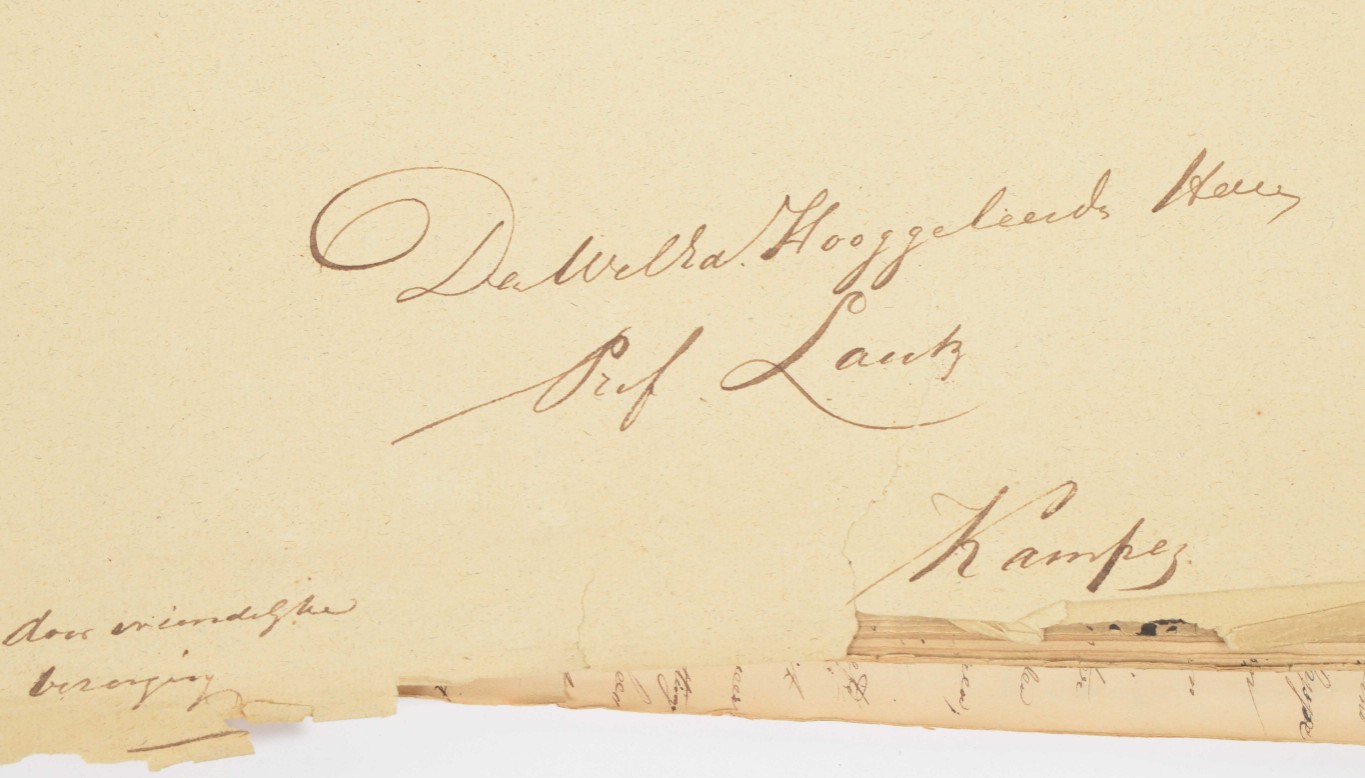 Den WelEd. Hooggeleerde Heer
Prof Lauts
Kampen
door vriendelijke
bezorging